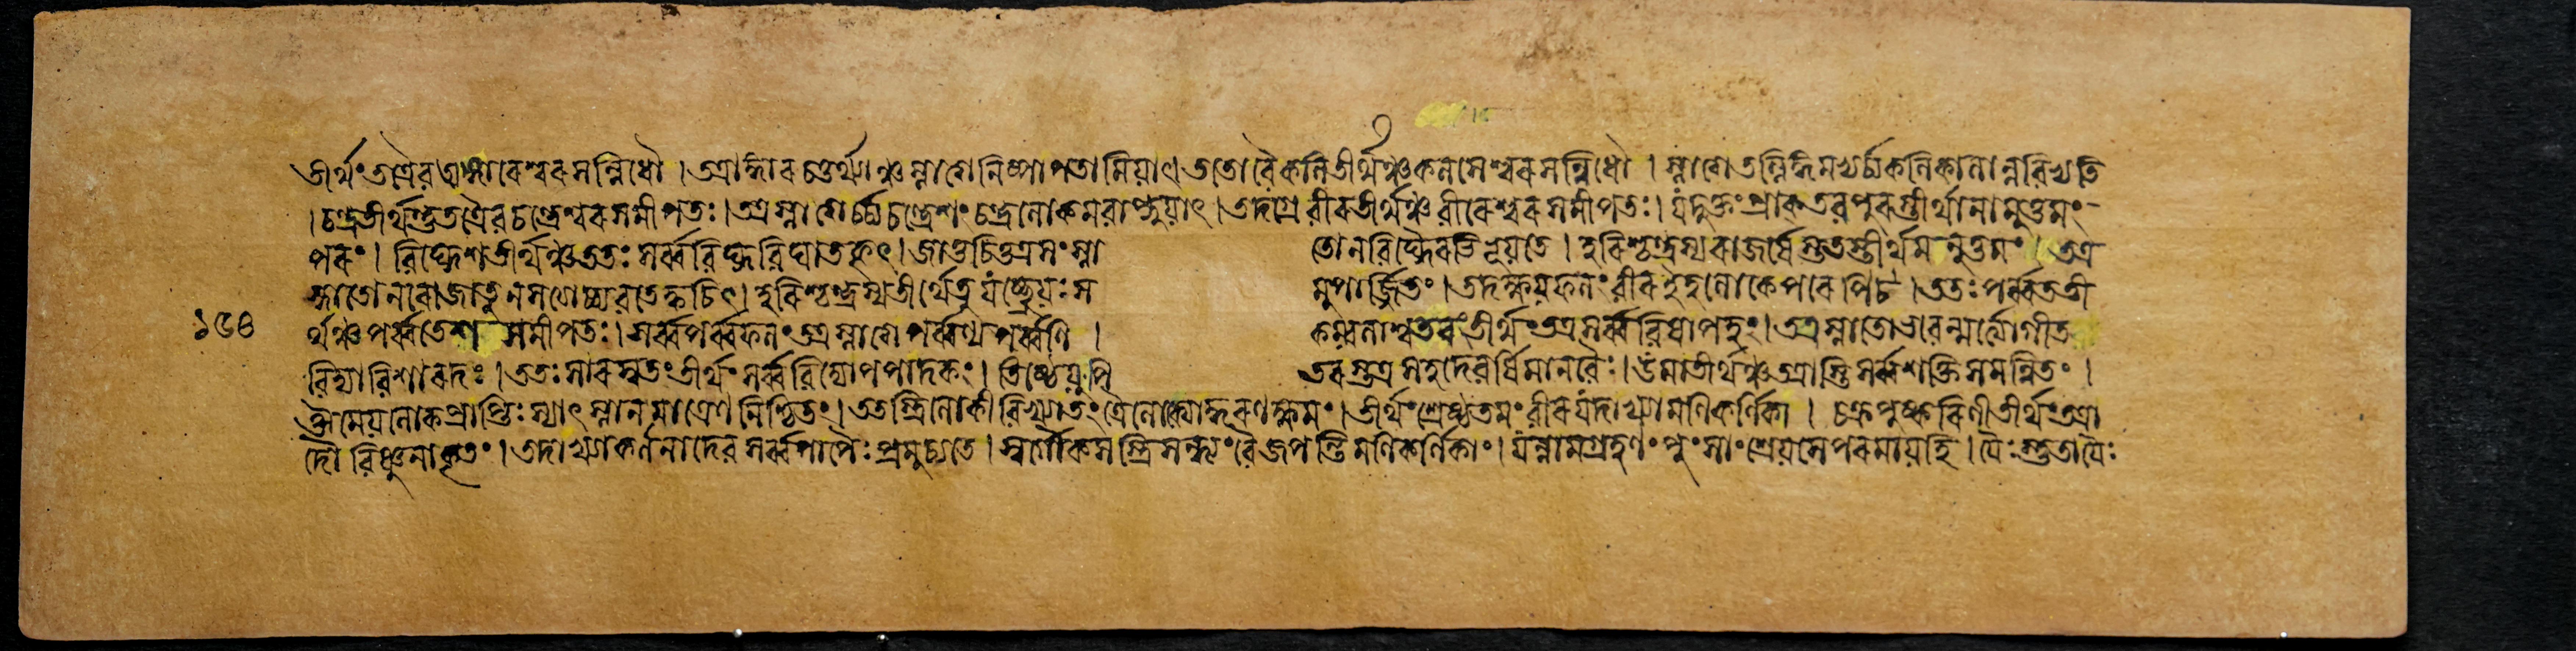 তীর্থং তত্রৈব ঙ্গারেশ্বরসন্নিধৌ । অত্রাঙ্গারচতুর্থ্যাঞ্চ স্নাতো নিষ্পাপতামিয়াৎ । ততো বৈ কলিতীর্থঞ্চ কলশেশ্বরসন্নিধৌ । কলিকালান্ন বিভ্যতি
। চন্দ্রতীর্থন্তু তত্রৈব চন্দ্রেশ্বরসমীপতঃ । অত্র স্নাতোর্চ্চ্য চন্দ্রেশং চন্দ্রলোকমবাপ্নুয়াৎ । তদগ্রে বীরতীর্থঞ্চ বীরেশ্বরসমীপতঃ । যদুক্তং প্রাক্ তব পুরস্তীর্থানামুত্তমং
পরং । বিঘ্নেশতীর্থঞ্চ ততঃ সর্ব্ববিঘ্নবিঘাতকৃৎ । জাতুচিত্তত্র সংস্নাতো ন বিঘ্নৈরভিভূয়তে । হরিশ্চন্দ্রস্য রাজর্ষেস্তু ততস্তীর্থমনুত্তমং । তত্র
স্নাতো নরো জাতু ন সত্যাচ্চ্যবতে ক্বচিৎ । হরিশ্চন্দ্রস্য তীর্থে তু যচ্ছ্রেয়ঃ সমুপার্জ্জিতং । তদক্ষয়ফলং বীর ইহ লোকে পরেপি চ । ততঃ পর্ব্বততী
১৬৪ র্থঞ্চ পর্ব্বতেশসমীপতঃ । সর্ব্বপর্ব্বফলং তত্র স্নাতে পর্ব্বণ্যপর্ব্বণি । কম্বলাশ্বতরং তীর্থং তত্র সর্ব্ববিষাপহং । তত্র স্নাতো ভবেন্মর্ত্ত্যো গীত
বিদ্যাবিশারদঃ । ততঃ সারস্বতং তীর্থং সর্ব্ববিদ্যোপপাদকং । তিষ্ঠেয়ুঃ পিতরস্তত্র সহ দেবর্ষিমানবৈঃ । উমাতীর্থঞ্চ তত্রাস্তি সর্ব্বশক্তিসমন্বিতং ।
ঔমেয়লোকপ্রাপ্তিঃ স্যাৎ স্নানমাত্রেণ নিশ্চিতং । ততস্ত্রিলোকীবিখ্যাতং ত্রৈলোক্যোদ্ধরণক্ষমং । তীর্থং শ্রেষ্ঠতমং বীর যদাখ্যা মণিকর্ণিকা । চক্রপুষ্করিণী তীর্থং তত্রা
দৌ বিষ্ণুনা কৃতং । তদাখ্যাকর্ণনাদেব সর্ব্বপাপৈঃ প্রমুচ্যতে । স্বর্গৌকসস্ত্রিসন্ধ্যং বৈ জপন্তি মণিকর্ণিকাং । যন্নামগ্রহণং পুংসাং শ্রেয়সে পরমায় হি । যৈঃ শ্রুতা যৈঃ